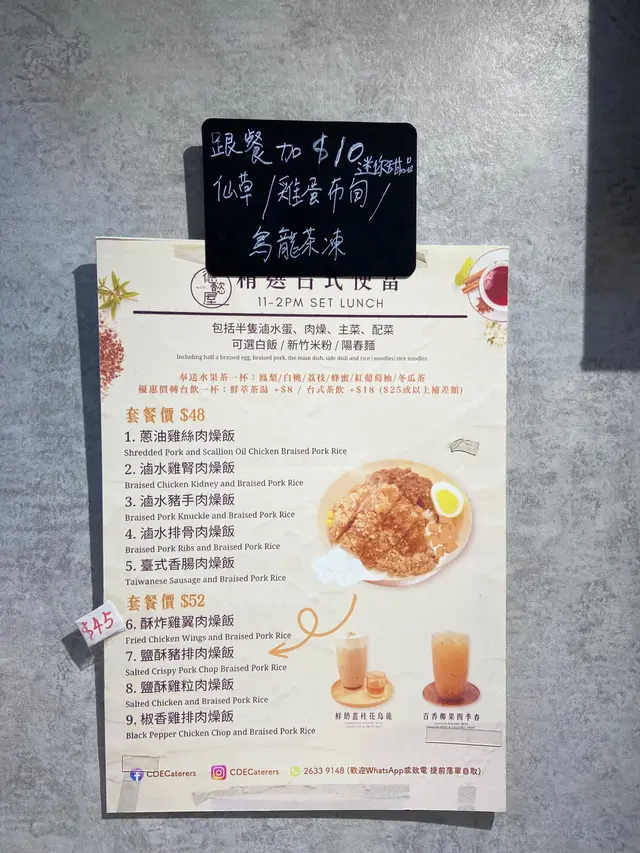 跟餐加 $10
迷你甜品
仙草 / 雞蛋布甸 /
烏龍茶凍
德懿屋
精選台式便當
11-2PM SET LUNCH
包括半隻滷水蛋、肉燥、主菜、配菜
可選白飯 / 新竹米粉 / 陽春麵
Including half a braised egg, braised pork, the main dish, side dish and rice / noodles/ rice noodles
奉送水果茶一杯：鳳梨/白桃/荔枝/蜂蜜/紅葡萄柚/冬瓜茶
優惠價轉台飲一杯：鮮萃茶湯 +$8 / 台式茶飲 +$18 ($25或以上補差額)
套餐價 $48
1. 蔥油雞絲肉燥飯
Shredded Pork and Scallion Oil Chicken Braised Pork Rice
2. 滷水雞腎肉燥飯
Braised Chicken Kidney and Braised Pork Rice
3. 滷水豬手肉燥飯
Braised Pork Knuckle and Braised Pork Rice
4. 滷水排骨肉燥飯
Braised Pork Ribs and Braised Pork Rice
5. 臺式香腸肉燥飯
Taiwanese Sausage and Braised Pork Rice
套餐價 $52
$45
6. 酥炸雞翼肉燥飯
Fried Chicken Wings and Braised Pork Rice
7. 鹽酥豬排肉燥飯
Salted Crispy Pork Chop Braised Pork Rice
8. 鹽酥雞粒肉燥飯
Salted Chicken and Braised Pork Rice
9. 椒香雞排肉燥飯
Black Pepper Chicken Chop and Braised Pork Rice
鮮奶蓋桂花烏龍
百香椰果四季春
CDECaterers
CDECaterers
2633 9148 (歡迎WhatsApp或致電 提前落單自取)